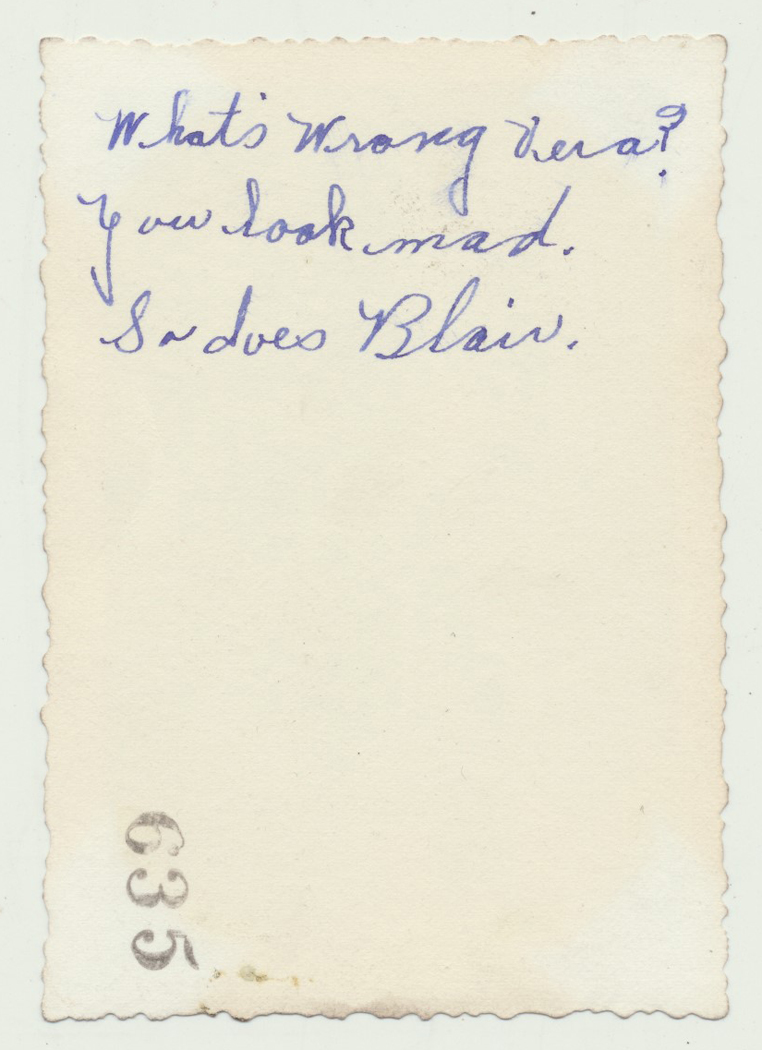 What's Wrong Vera?
You look mad.
So does Blair.
635